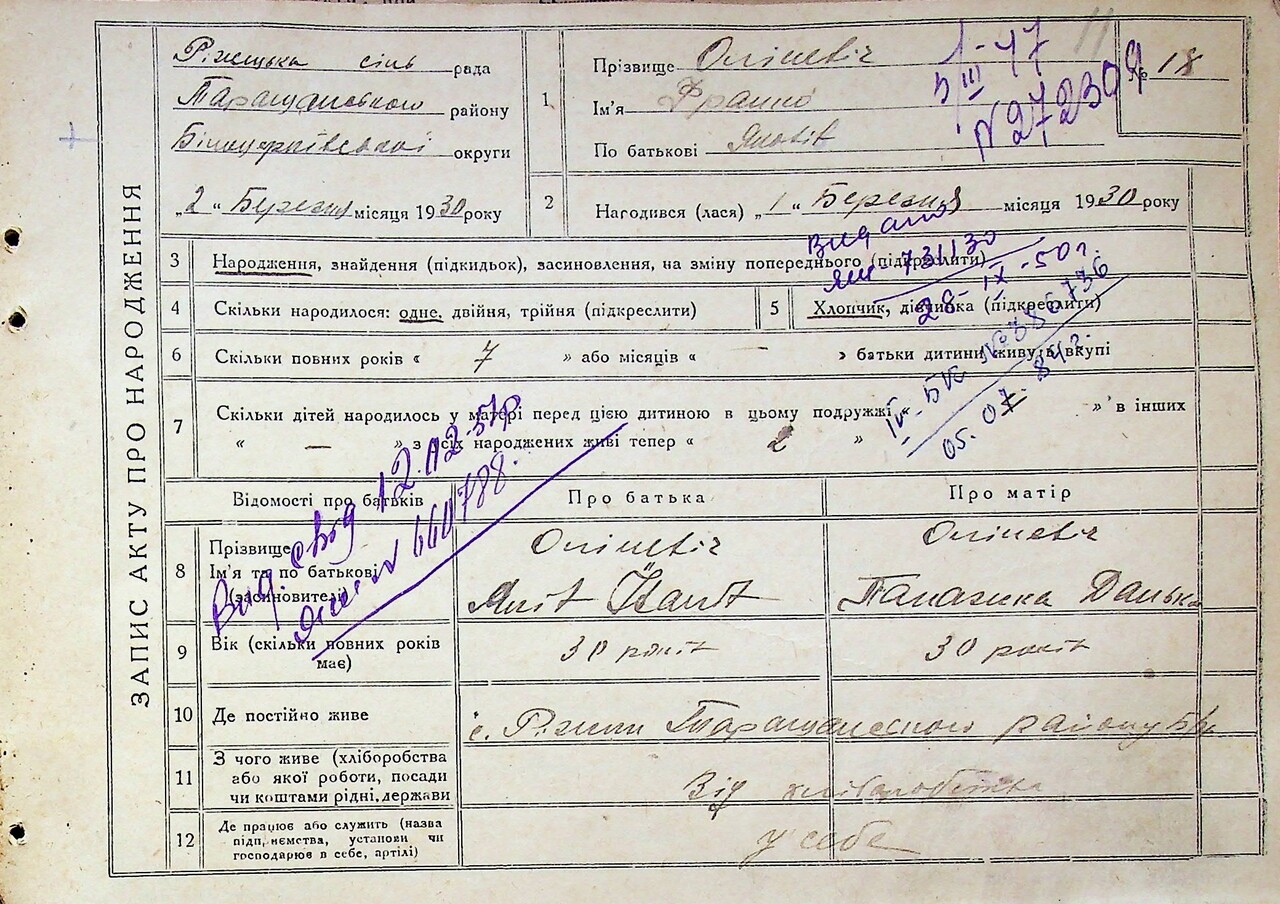 ЗАПИС АКТУ ПРО НАРОДЖЕННЯ
рада
Таращанського району
Білоцерківської округи
„2“ Березня місяця 1930 року
1
Прізвище Оліневіч
Ім'я
По батькові Яковів
№ 18
5/III-47
N 272309
2
Народився (лася) „1“ Березня місяця 1930 року
3
Народження, знайдення (підкидьок), засиновлення, на зміну попереднього (підкреслити)
4
Скільки народилося: одне, двійня, трійня (підкреслити)
5
Хлопчик, дівчинка (підкреслити)
6
Скільки повних років « 7 » або місяців « — » батьки дитини живуть вкупі
7
Скільки дітей народилось у матері перед цією дитиною в цьому подружжі « » в інших
« — » з усіх народжених живі тепер « 2 »
731130
28-IX-50 г.
IV-БК №386736
05.07.
Вид. свід 12.02.57р
N 660788.
Відомості про батьків
Про батька
Про матір
8
Прізвище
Ім'я та по батькові
(засиновителі)
Оліневіч
Яків Іванів
Оліневіч
Палажка Даньк
9
Вік (скільки повних років має)
30 років
30 років
10
Де постійно живе
с. Ріжки Таращанського району Б/ц
11
З чого живе (хліборобства
або якої роботи, посади
чи коштами рідні, держави
Від хліборобства
12
Де працює або служить (назва
підприємства, установи чи
господарює в себе, артілі)
у себе